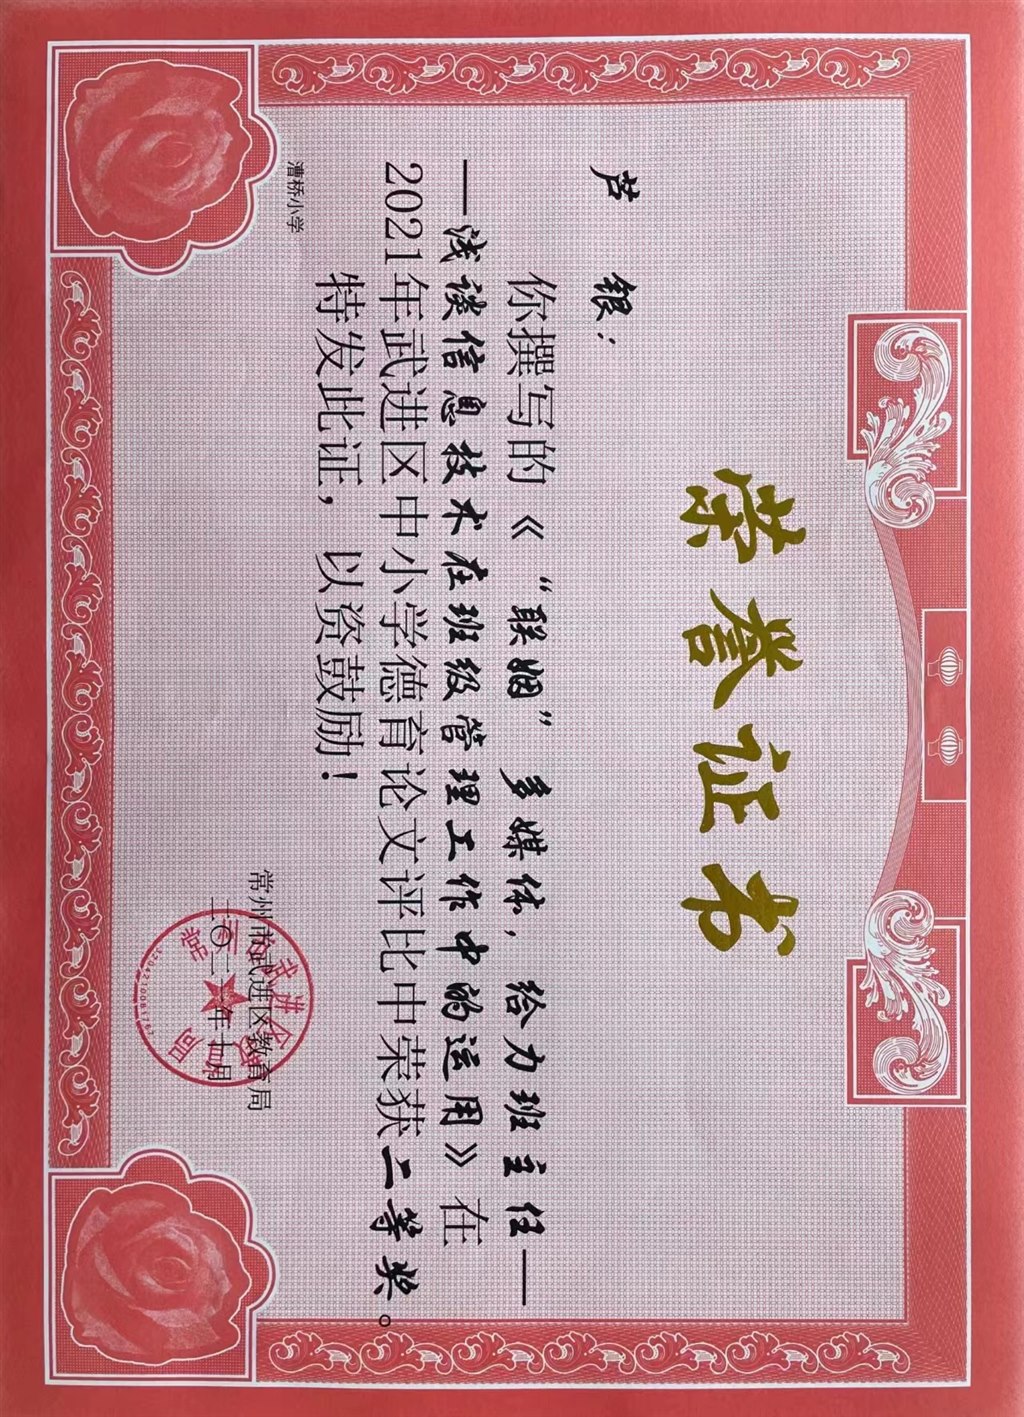 荣誉证书
芦 银：
你撰写的《“联姻”多媒体，给力班主任—
—浅谈信息技术在班级管理工作中的运用》在
2021年武进区中小学德育论文评比中荣获二等奖。
特发此证，以资鼓励！
漕桥小学
常州市武进区教育局
二〇二一年十月